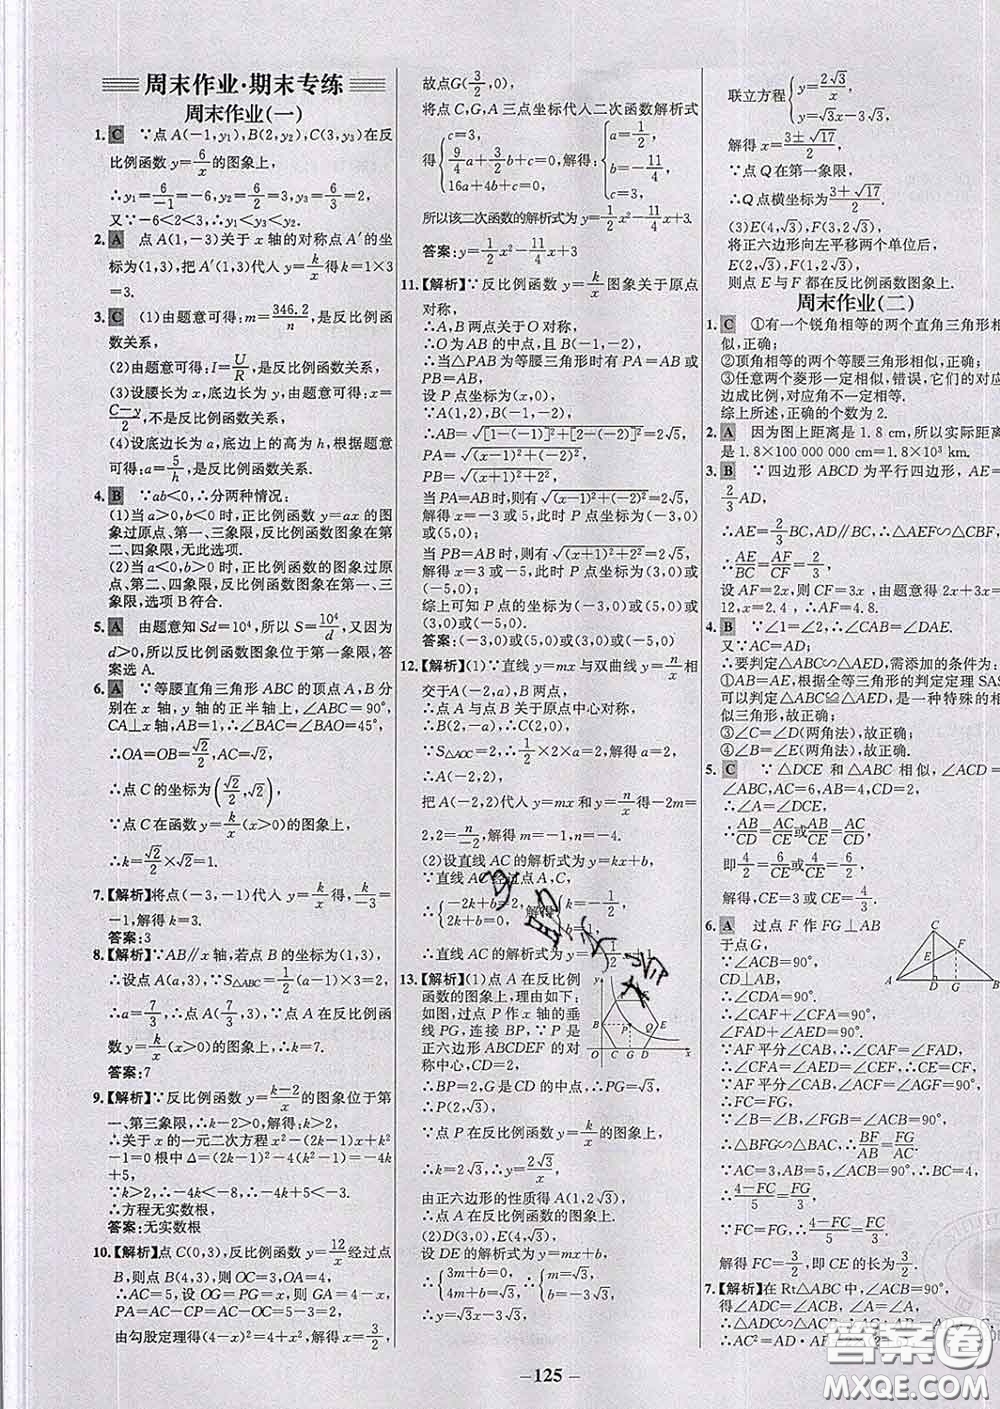 周末作业·期末专练
周末作业(一)
1. C ∵点A(-1,y₁),B(2,y₂),C(3,y₃)在反
比例函数y=6/x的图象上,
∴y₁=6/-1=-6,y₂=6/2=3,y₃=6/3=2,
又∵-6<2<3,∴y₁<y₃<y₂.
2. A 点A(1,-3)关于x轴的对称点A′的坐
标为(1,3),把A′(1,3)代人y=k/x得k=1×3
=3.
3. C (1)由题意可得:m=346.2/n,是反比例函
数关系,
(2)由题意可得:I=U/R,是反比例函数关系,
(3)设腰长为x,底边长为y,由题意可得:x=
C-y/2,不是反比例函数关系,
(4)设底边长为a,底边上的高为h,根据题意
可得:a=5/h,是反比例函数关系.
4. B ∵ab<0,∴分两种情况:
(1)当a>0,b<0时,正比例函数y=ax的图
象过原点、第一、三象限,反比例函数图象在第
二、四象限,无此选项.
(2)当a<0,b>0时,正比例函数的图象过原
点、第二、四象限,反比例函数图象在第一、三
象限,选项B符合.
5. A 由题意知Sd=10⁴,所以S=10⁴/d,又因为
d>0,所以反比例函数图象位于第一象限,答
案选A.
6. A ∵等腰直角三角形ABC的顶点A,B分
别在x轴,y轴的正半轴上,∠ABC=90°,
CA⊥x轴,AB=1,∴∠BAC=∠BAO=45°,
∴OA=OB=√2/2,AC=√2,
∴点C的坐标为(√2/2,√2),
∵点C在函数y=k/x(x>0)的图象上,
∴k=√2/2×√2=1.
7.【解析】将点(-3,-1)代人y=k/x得,k/-3=
-1,解得k=3.
答案:3
8.【解析】∵AB∥x轴,若点B的坐标为(1,3),
∴设点A(a,3),∵S△ABC=1/2(a-1)×3=2,
∴a=7/3,∴点A(7/3,3),∵点A在反比例函
数y=k/x(x>0)的图象上,∴k=7.
答案:7
9.【解析】∵反比例函数y=k-2/x的图象位于第
一、第三象限,∴k-2>0,∴k>2,
∴关于x的一元二次方程x²-(2k-1)x+k²
-1=0根的判别式Δ=(2k-1)²-4(k²-1)=-4k
+5,
∵k>2,∴-4k<-8,∴-4k+5<-3,
∴方程无实数根
答案:无实数根
10.【解析】点C(0,3),反比例函数y=12/x经过点
B,则点B(4,3),则OC=3,OA=4,
∴AC=5,设OG=PG=x,则GA=4-x,
PA=AC-CP=AC-OC=5-3=2,
由勾股定理得(4-x)²=4+x²,解得x=3/2,
故点G(3/2,0),
将点C,G,A三点坐标代人二次函数解析式
得{c=3, 9/4a+3/2b+c=0, 16a+4b+c=0, 解得:{a=1/2, b=-11/4, c=3,
所以该二次函数的解析式为y=1/2x²-11/4x+3.
答案:y=1/2x²-11/4x+3
11.【解析】∵反比例函数y=k/x图象关于原点
对称,
∴A,B两点关于O对称,
∴O为AB的中点,且B(-1,-2),
∴当△PAB为等腰三角形时有PA=AB或
PB=AB,
设P点坐标为(x,0),
∵A(1,2),B(-1,-2),
∴AB=√[1-(-1)]²+[2-(-2)]²=2√5,
PA=√(x-1)²+2²,
PB=√(x+1)²+(-2)²,
当PA=AB时,则有√(x-1)²+(-2)²=2√5,
解得x=-3或5,此时P点坐标为(-3,0)
或(5,0);
当PB=AB时,则有√(x+1)²+2²=2√5,
解得x=3或-5,此时P点坐标为(3,0)或
(-5,0);
综上可知P点的坐标为(-3,0)或(5,0)或
(3,0)或(-5,0).
答案:(-3,0)或(5,0)或(3,0)或(-5,0)
12.【解析】(1)∵直线y=mx与双曲线y=n/x相
交于A(-2,a),B两点,
∴点A与点B关于原点中心对称,
∴B(2,-a),∴C(2,0),
∵S△AOC=1/2×2×a=2,解得a=2,
∴A(-2,2),
把A(-2,2)代人y=mx和y=n/x得-2m=
2,2=n/-2,解得m=-1,n=-4.
(2)设直线AC的解析式为y=kx+b,
∵直线AC经过点A,C,
∴{-2k+b=2, 2k+b=0, 解得{k=-1/2, b=1,
∴直线AC的解析式为y=-1/2x+1.
13.【解析】(1)点A在反比例
函数的图象上,理由如下:
如图,过点P作x轴的垂
线PG,连接BP,∵P是
正六边形ABCDEF的对
称中心,CD=2,
∴BP=2,G是CD的中点,∴PG=√3,
∴P(2,√3),
∵点P在反比例函数y=k/x的图象上,
∴k=2√3,∴y=2√3/x,
由正六边形的性质得A(1,2√3),
∴点A在反比例函数的图象上.
(2)D(3,0),E(4,√3),
设DE的解析式为y=mx+b,
∴{3m+b=0, 4m+b=√3, ∴{m=√3, b=-3√3,
∴y=√3x-3√3,
y x A F B P Q E O C G D
联立方程{y=2√3/x, y=√3x-3√3,
解得x=3±√17/2,
∵点Q在第一象限,
∴Q点横坐标为3+√17/2.
(3)E(4,√3),F(3,2√3),
将正六边形向左平移两个单位后,
E(2,√3),F(1,2√3),
则点E与F都在反比例函数图象上.
周末作业(二)
1. C ①有一个锐角相等的两个直角三角形相
似,正确;
②顶角相等的两个等腰三角形相似,正确;
③任意两个菱形一定相似,错误,它们的对应
边成比例,对应角不一定相等.
综上所述,正确的个数为2.
2. A 因为图上距离是1.8 cm,所以实际距
是1.8×100 000 000 cm=1.8×10³ km.
3. B ∵四边形ABCD为平行四边形,AE=
2/3AD,
∴AE=2/3BC,AD∥BC,∴△AEF∽△CBF,
∴AE/BC=AF/CF=2/3,
设AF=2x,则CF=3x,由题意得2x+3x=
12,x=2.4,∴AF=4.8.
4. B ∵∠1=∠2,∴∠CAB=∠DAE.
又∵AC=AD;
∴要判定△ABC∽△AED,需添加的条件为:
①AB=AE,根据全等三角形的判定定理SAS
可以判定△ABC≌△AED,是一种特殊的相
似三角形,故正确;
③∠C=∠D(两角法),故正确;
④∠B=∠E(两角法),故正确.
5. C ∵△DCE和△ABC相似,∠ACD=
∠ABC,AC=6,AB=4,CD=2,
∴∠A=∠DCE,
∴AB/CD=AC/CE或AB/CE=AC/CD,
即4/2=6/CE或4/CE=6/2,
解得,CE=3或CE=4/3.
6. A 过点F作FG⊥AB
于点G,
∵∠ACB=90°,
CD⊥AB,
∴∠CDA=90°,
∠FAD+∠AED=90°,
∵AF平分∠CAB,∴∠CAF=∠FAD,
∴∠CFA=∠AED=∠CEF,
∴CE=CF,
∵AF平分∠CAB,∠ACF=∠AGF=90°,
∴FC=FG,
∵∠B=∠B,∠FGB=∠ACB=90°,
∴△BFG∽△BAC,∴BF/AB=FG/AC,
∵AC=3,AB=5,∠ACB=90°,∴BC=4,
∴4-FC/5=FG/3,
∵FC=FG,∴4-FC/5=FC/3,
解得FC=3/2,即CE的长为3/2.
C E F A D G B
7.【解析】在Rt△ABC中,∠ACB=90°,
得∠ADC=∠ACB,∠A=∠A,
∴△ACD∽△ABC,
∴AC²=AD·AB,
答案圈
MXQE.COM
-125-